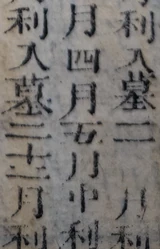 利入墓二 月利
月四月五月中利
利入墓三十二月利